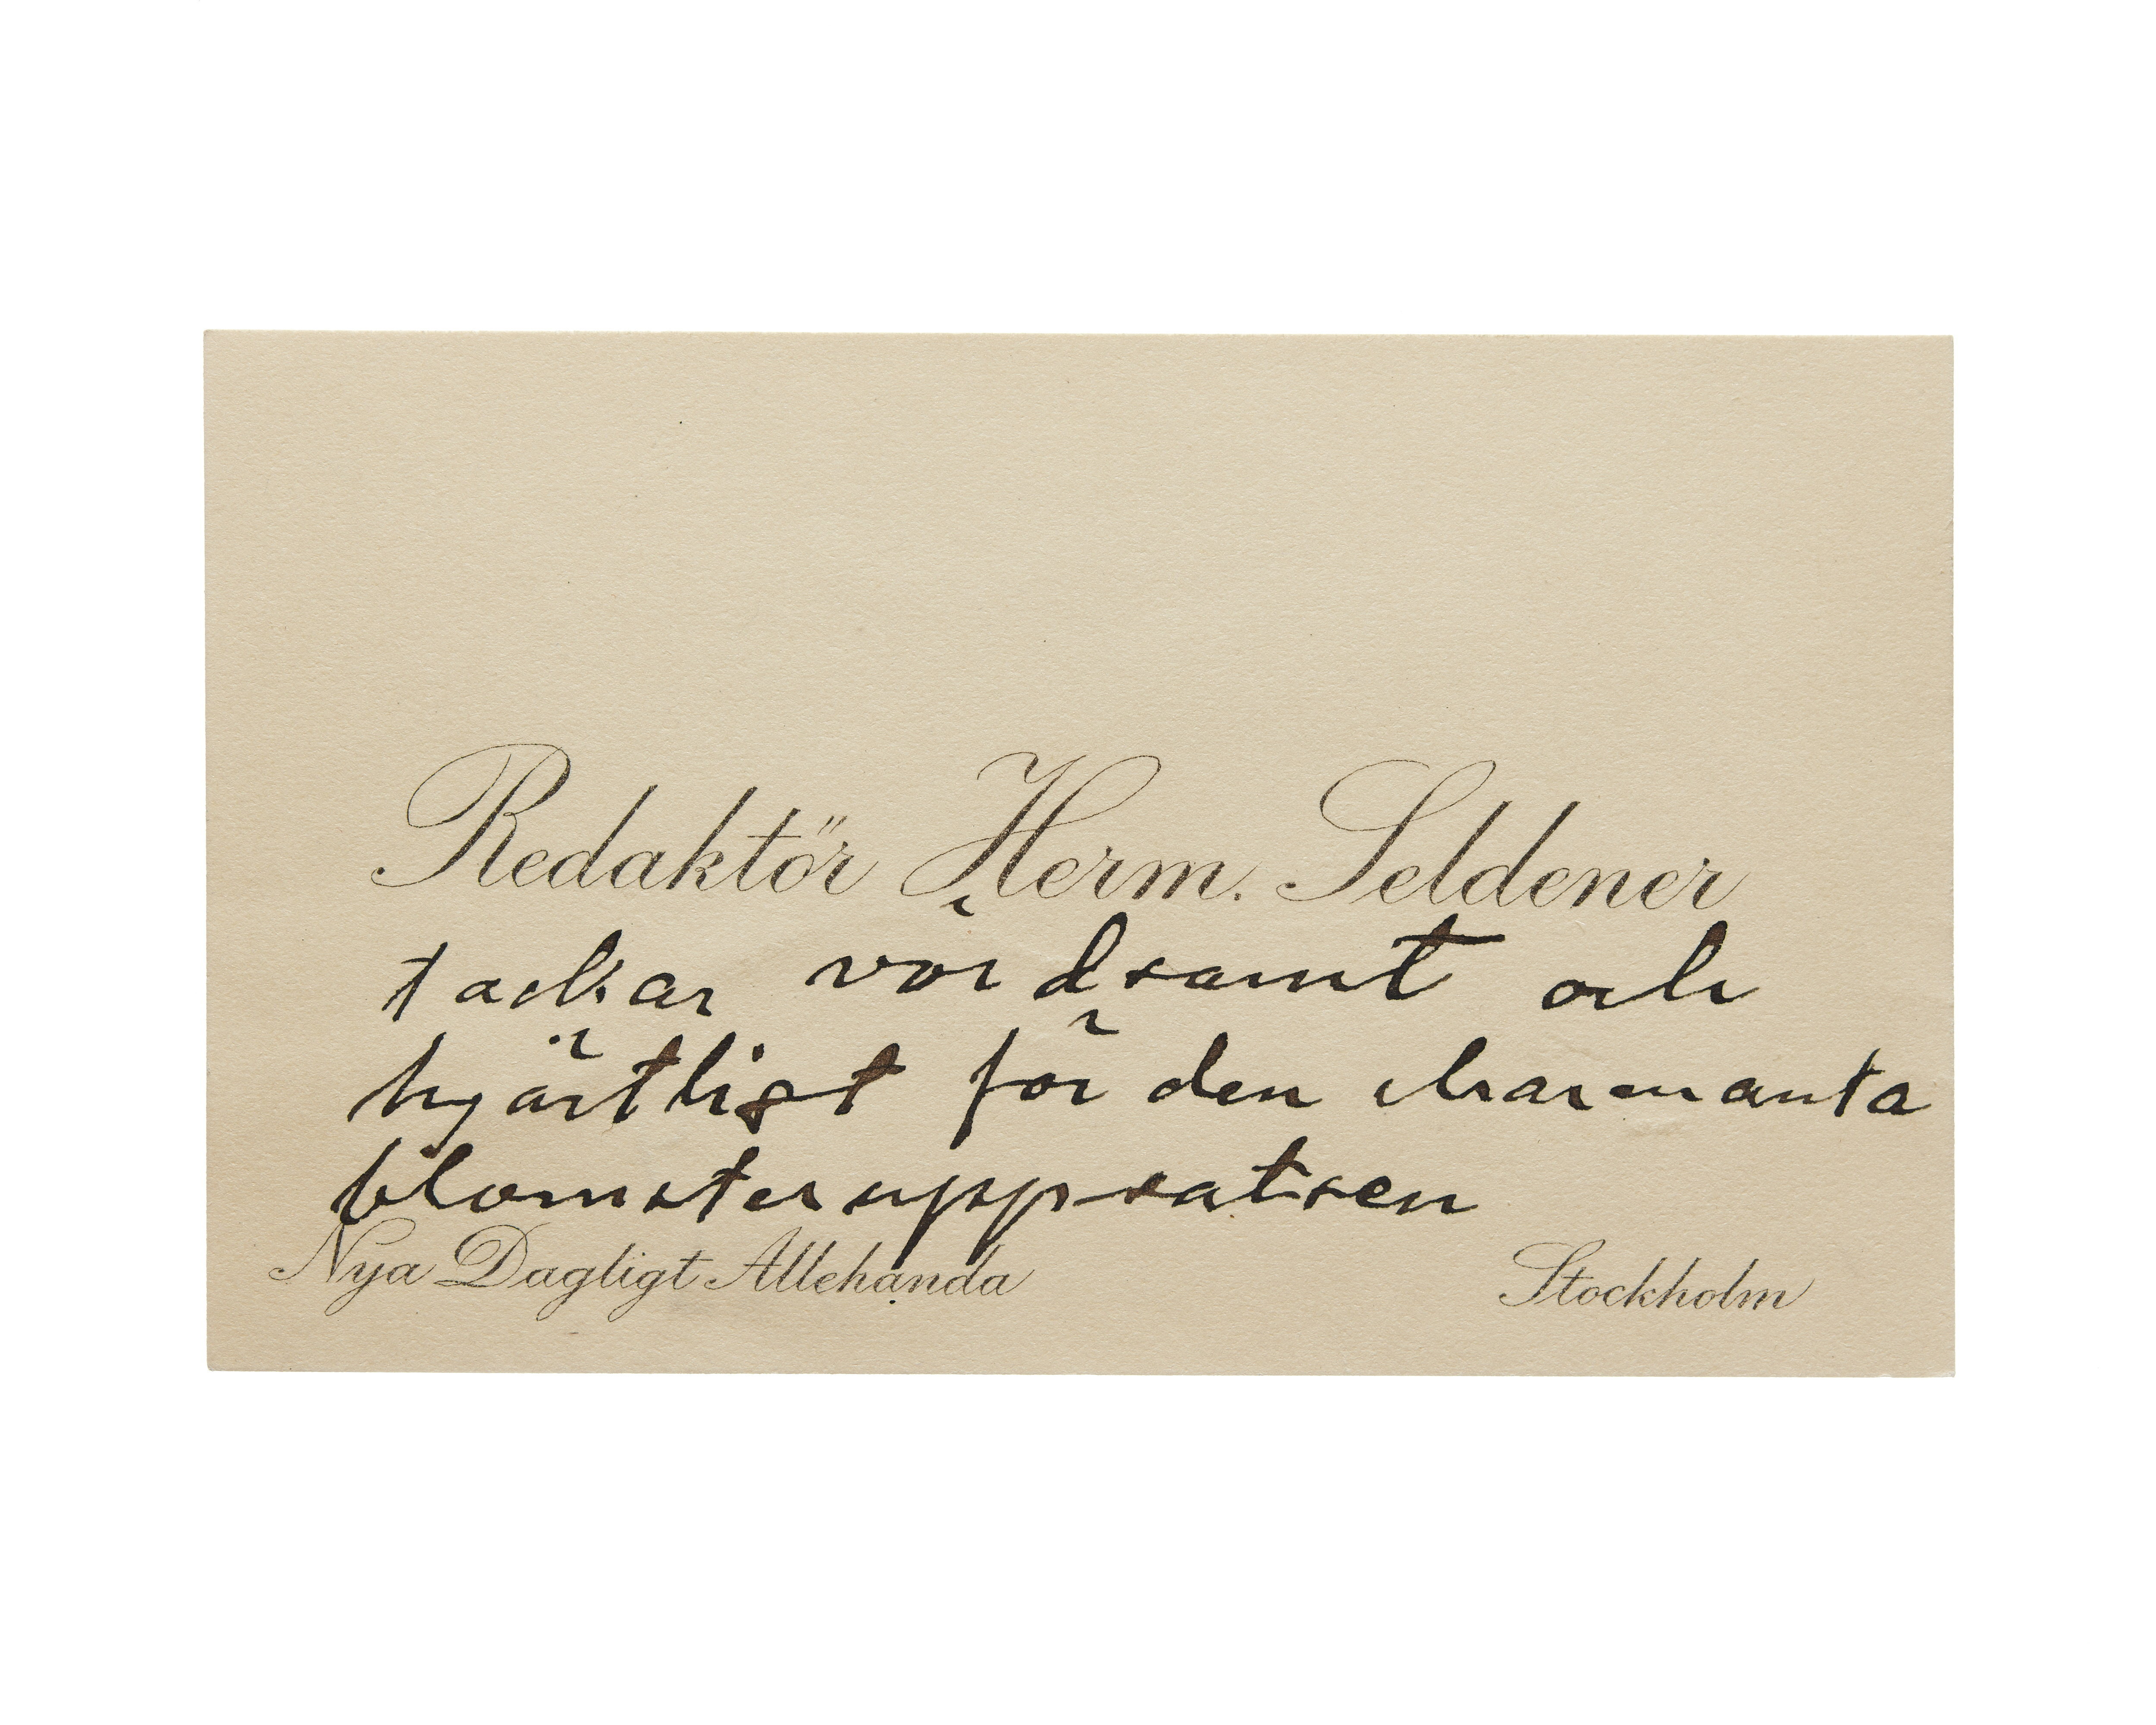 Redaktör Herm. Seldener
tackar vördsamt och
hjärtligt för den charmanta
blomsteruppsatsen
Nya Dagligt Allehanda Stockholm